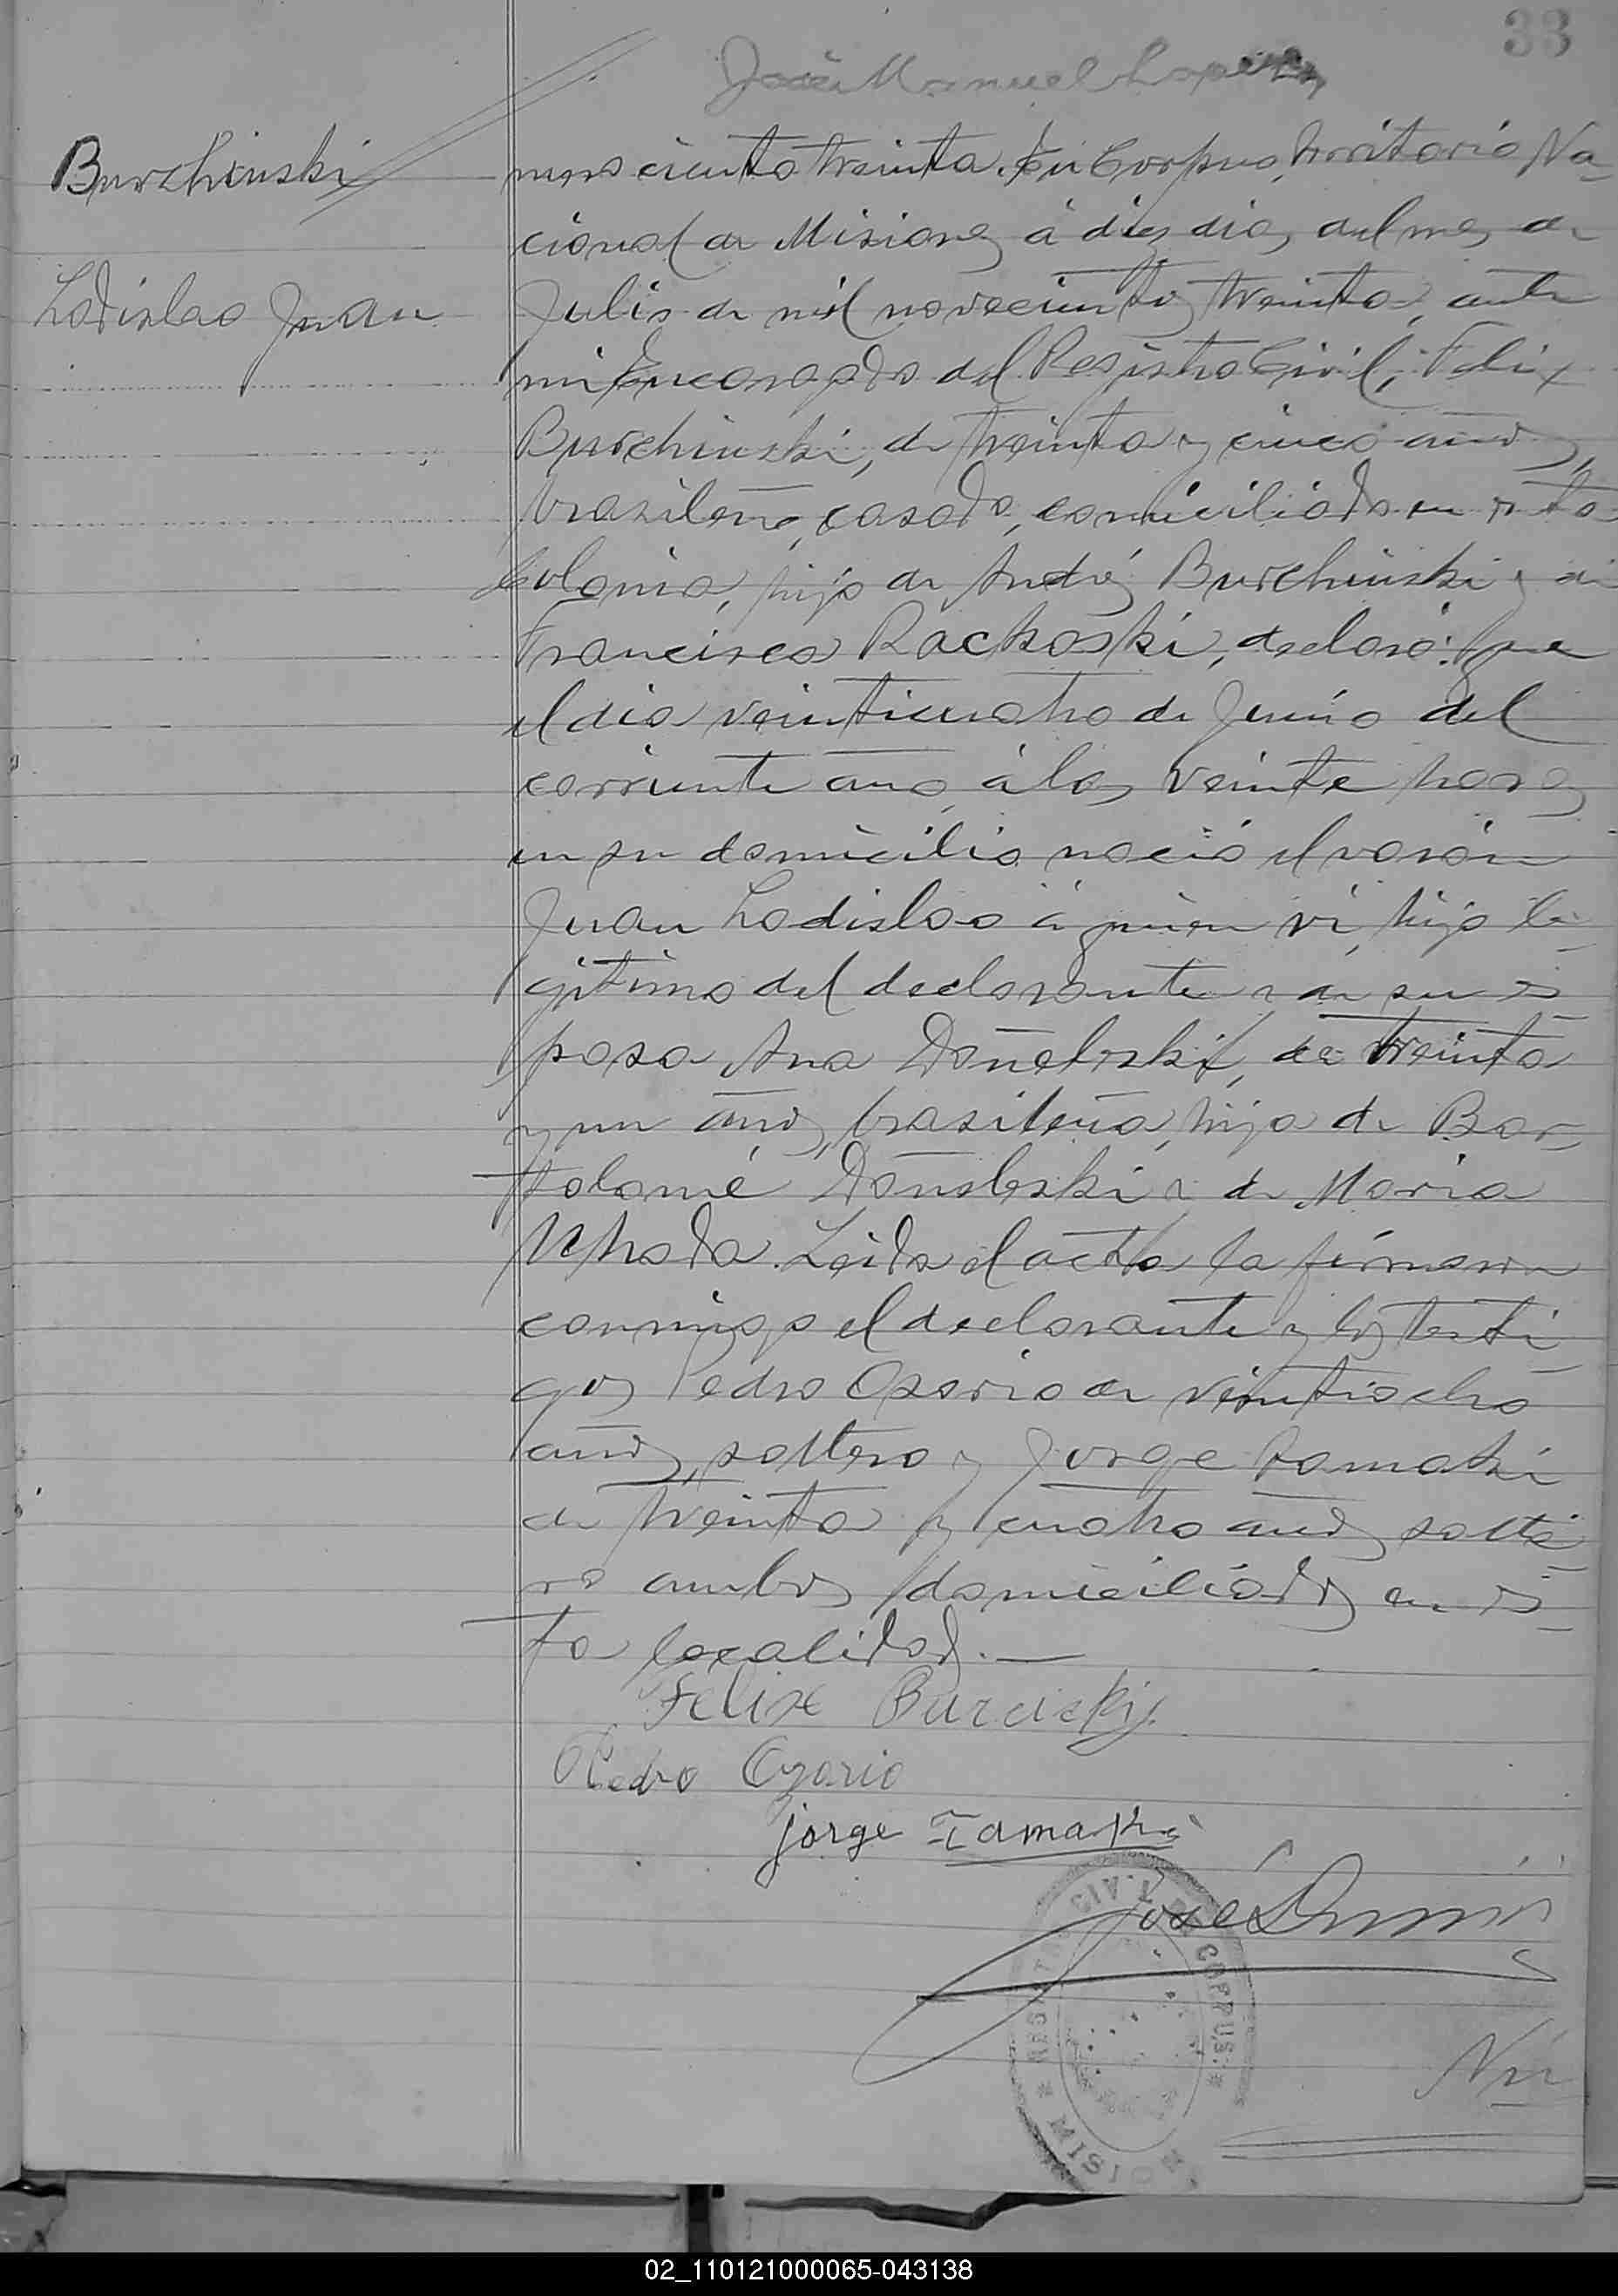 33
José Manuel
Burchinski
Ladislao Juan
mero ciento treinta. En Corpus, territorio Na-
cional de Misiones á diez dias del mes de
Julio de mil novecientos treinta, ante
mi Encargado del Registro Civil, Felix
Burchinski, de treinta y cinco años,
brasileño, casado, domiciliado en esta
Colonia, hijo de Andrés Burchinski y de
Francisca Rackoski, declaró: Que
el dia veinticuatro de Junio del
corriente año, á las veinte horas
en su domicilio nació el varón
Juan Ladislao á quien vi, hijo le-
gitimo del declarante y de su es-
posa Ana Doñelski, de treinta
y un años, brasileña, hija de Bar-
tolomé Doñelski y de Maria
Leida el acta la firmaron
conmigo el declarante y los testi-
gos Pedro Osorio de veintiocho
años, soltero y Jorge Tamaki
de treinta y cuatro años solte-
ro ambos domiciliados en es-
ta localidad.—
Felix Burciski
Pedro Ozorio
Jorge Tamaki
José
REGISTRO CIVIL DE CORPUS * MISIONES *
Nú-
02_110121000065-043138